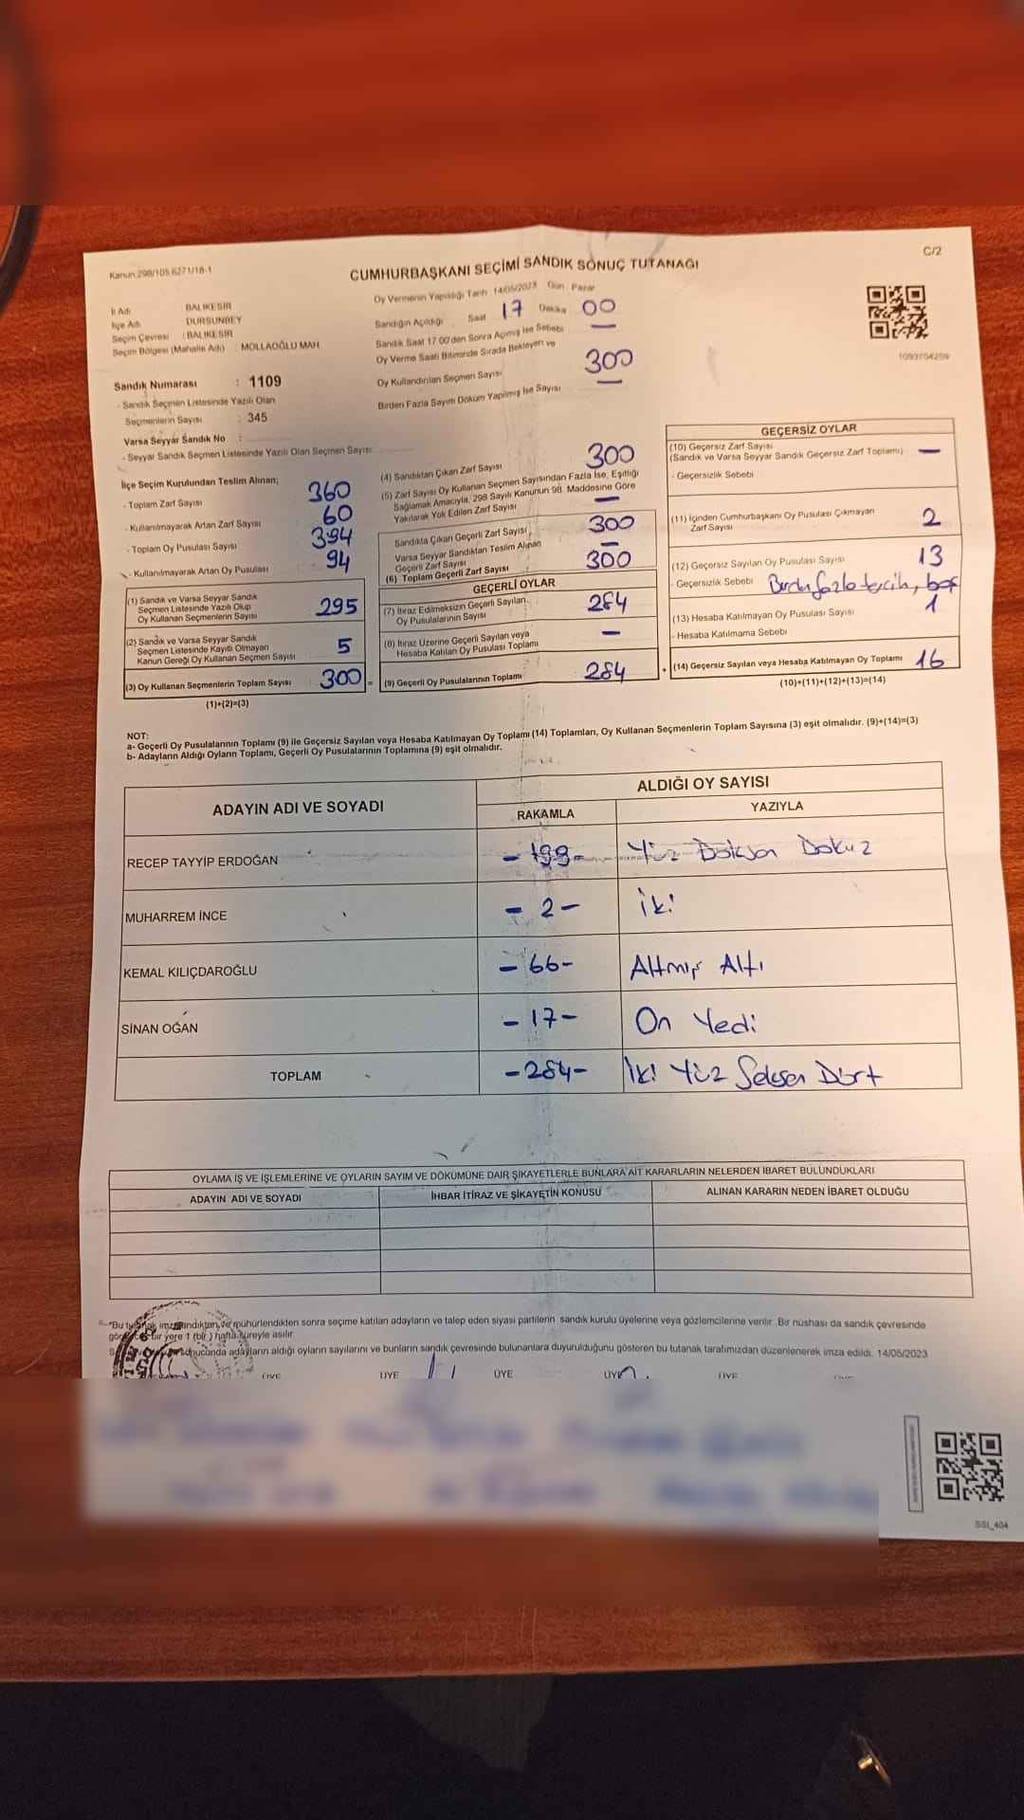 Kanun 298/105 6271/18-1
C/2
CUMHURBAŞKANI SEÇİMİ SANDIK SONUÇ TUTANAĞI
İl Adı BALIKESİR
İlçe Adı DURSUNBEY
Seçim Çevresi : BALIKESİR
Seçim Bölgesi (Mahalle Adı) : MOLLAOĞLU MAH.
Sandık Numarası : 1109
- Sandık Seçmen Listesinde Yazılı Olan
Seçmenlerin Sayısı : 345
Varsa Seyyar Sandık No :
- Seyyar Sandık Seçmen Listesinde Yazılı Olan Seçmen Sayısı:
Oy Vermenin Yapıldığı Tarih 14/05/2023 Gün Pazar
Sandığın Açıldığı Saat 17 Dakika 00
Sandık Saat 17.00'den Sonra Açılmış İse Sebebi —
Oy Verme Saati Bitiminde Sırada Bekleyen ve
Oy Kullandırılan Seçmen Sayısı 300
Birden Fazla Sayım Döküm Yapılmış İse Sayısı —
1093704209
İlçe Seçim Kurulundan Teslim Alınan;
- Toplam Zarf Sayısı 360
- Kullanılmayarak Artan Zarf Sayısı 60
- Toplam Oy Pusulası Sayısı 394
- Kullanılmayarak Artan Oy Pusulası 94
(1) Sandık ve Varsa Seyyar Sandık
Seçmen Listesinde Yazılı Olup
Oy Kullanan Seçmenlerin Sayısı 295
(2) Sandık ve Varsa Seyyar Sandık
Seçmen Listesinde Kayıtlı Olmayan
Kanun Gereği Oy Kullanan Seçmen Sayısı 5
(3) Oy Kullanan Seçmenlerin Toplam Sayısı 300 =
(1)+(2)=(3)
(4) Sandıktan Çıkan Zarf Sayısı 300
(5) Zarf Sayısı Oy Kullanan Seçmen Sayısından Fazla İse, Eşitliği
Sağlamak Amacıyla, 298 Sayılı Kanunun 98. Maddesine Göre
Yakılarak Yok Edilen Zarf Sayısı —
Sandıkta Çıkan Geçerli Zarf Sayısı 300
Varsa Seyyar Sandıktan Teslim Alınan
Geçerli Zarf Sayısı —
(6) Toplam Geçerli Zarf Sayısı 300
GEÇERLİ OYLAR
(7) İtiraz Edilmeksizin Geçerli Sayılan
Oy Pusulalarının Sayısı 284
(8) İtiraz Üzerine Geçerli Sayılan veya
Hesaba Katılan Oy Pusulası Toplamı —
(9) Geçerli Oy Pusulalarının Toplamı 284 +
GEÇERSİZ OYLAR
(10) Geçersiz Zarf Sayısı
(Sandık ve Varsa Seyyar Sandık Geçersiz Zarf Toplamı) —
- Geçersizlik Sebebi
(11) İçinden Cumhurbaşkanı Oy Pusulası Çıkmayan
Zarf Sayısı 2
(12) Geçersiz Sayılan Oy Pusulası Sayısı 13
- Geçersizlik Sebebi Birden fazla tercih, boş
(13) Hesaba Katılmayan Oy Pusulası Sayısı 1
- Hesaba Katılmama Sebebi
(14) Geçersiz Sayılan veya Hesaba Katılmayan Oy Toplamı 16
(10)+(11)+(12)+(13)=(14)
NOT:
a- Geçerli Oy Pusulalarının Toplamı (9) ile Geçersiz Sayılan veya Hesaba Katılmayan Oy Toplamı (14) Toplamları, Oy Kullanan Seçmenlerin Toplam Sayısına (3) eşit olmalıdır. (9)+(14)=(3)
b- Adayların Aldığı Oyların Toplamı, Geçerli Oy Pusulalarının Toplamına (9) eşit olmalıdır.
ADAYIN ADI VE SOYADI
ALDIĞI OY SAYISI
RAKAMLA YAZIYLA
RECEP TAYYİP ERDOĞAN - 199 - Yüz Doksan Dokuz
MUHARREM İNCE - 2 - İki
KEMAL KILIÇDAROĞLU - 66 - Altmış Altı
SİNAN OĞAN - 17 - On Yedi
TOPLAM - 284 - İki Yüz Seksen Dört
OYLAMA İŞ VE İŞLEMLERİNE VE OYLARIN SAYIM VE DÖKÜMÜNE DAİR ŞİKAYETLERLE BUNLARA AİT KARARLARIN NELERDEN İBARET BULUNDUKLARI
ADAYIN ADI VE SOYADI İHBAR İTİRAZ VE ŞİKAYETİN KONUSU ALINAN KARARIN NEDEN İBARET OLDUĞU
imzalandıktan ve mühürlendikten sonra seçime katılan adayların ve talep eden siyasi partilerin sandık kurulu üyelerine veya gözlemcilerine verilir. Bir nüshası da sandık çevresinde
bir yere 1 (bir) hafta süreyle asılır.
sonucunda adayların aldığı oyların sayılarını ve bunların sandık çevresinde bulunanlara duyurulduğunu gösteren bu tutanak tarafımızdan düzenlenerek imza edildi. 14/05/2023
ÜYE ÜYE ÜYE ÜYE ÜYE
SSI_404